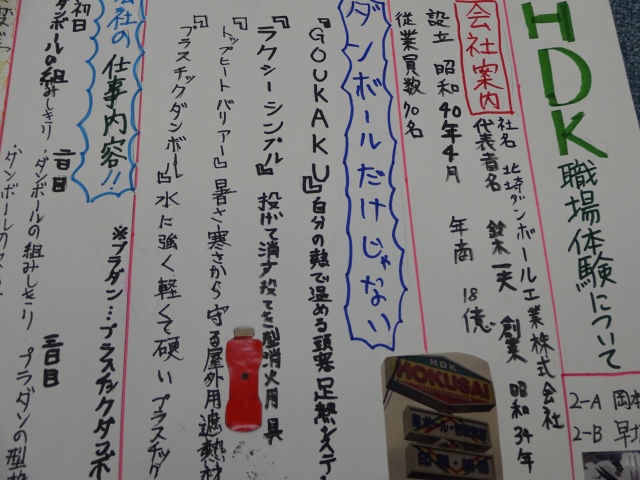 HDK 職場体験について
2-A 岡本
2-B 早
会社案内
社名 北埼ダンボール工業株式会社
代表者名 鈴木一夫 創業 昭和34年
設立 昭和40年4月 年商 18億
従業員数70名
ダンボールだけじゃない
『GOUKAKU』自分の熱で温める頭寒足熱システ
『ラクシーシンプル』投げて消す投てき型消火用具
『トップヒートバリアー』暑さ寒さから守る屋外用遮熱材
『プラスチックダンボール』水に強く軽くて硬いプラスチック
会社の仕事内容!!
※プラダン…プラスチックダンボ
初日 二日目 三日目
ダンボールの組みしきり ・ダンボールの組みしきり プラダンの型
・ダンボールの
HDK
HOKUSAI